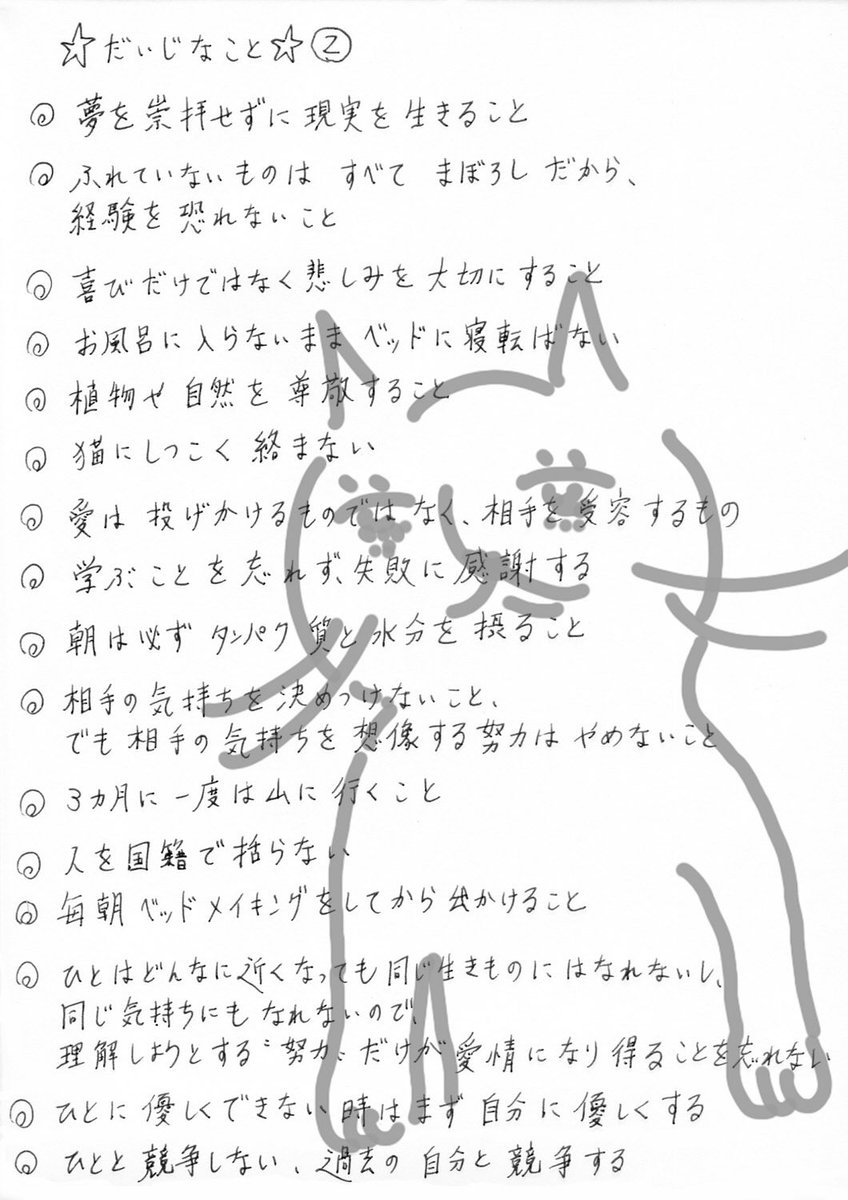 ☆だいじなこと☆②
◎ 夢を崇拝せずに現実を生きること
◎ ふれていないものは すべて まぼろし だから、
経験を恐れないこと
◎ 喜びだけではなく悲しみを大切にすること
◎ お風呂に入らないまま ベッドに寝転ばない
◎ 植物や自然を尊敬すること
◎ 猫にしつこく絡まない
◎ 愛は投げかけるものではなく、相手を受容するもの
◎ 学ぶことを忘れず、失敗に感謝する
◎ 朝は必ずタンパク質と水分を摂ること
◎ 相手の気持ちを決めつけないこと、
でも相手の気持ちを想像する努力は やめないこと
◎ 3カ月に一度は山に行くこと
◎ 人を国籍で括らない
◎ 毎朝ベッドメイキングをしてから出かけること
◎ ひとはどんなに近くなっても同じ生きものにはなれないし、
同じ気持ちにもなれないので、
理解しようとする"努力"だけが愛情になり得ることを忘れない
◎ ひとに優しくできない時はまず自分に優しくする
◎ ひとと競争しない、過去の自分と競争する